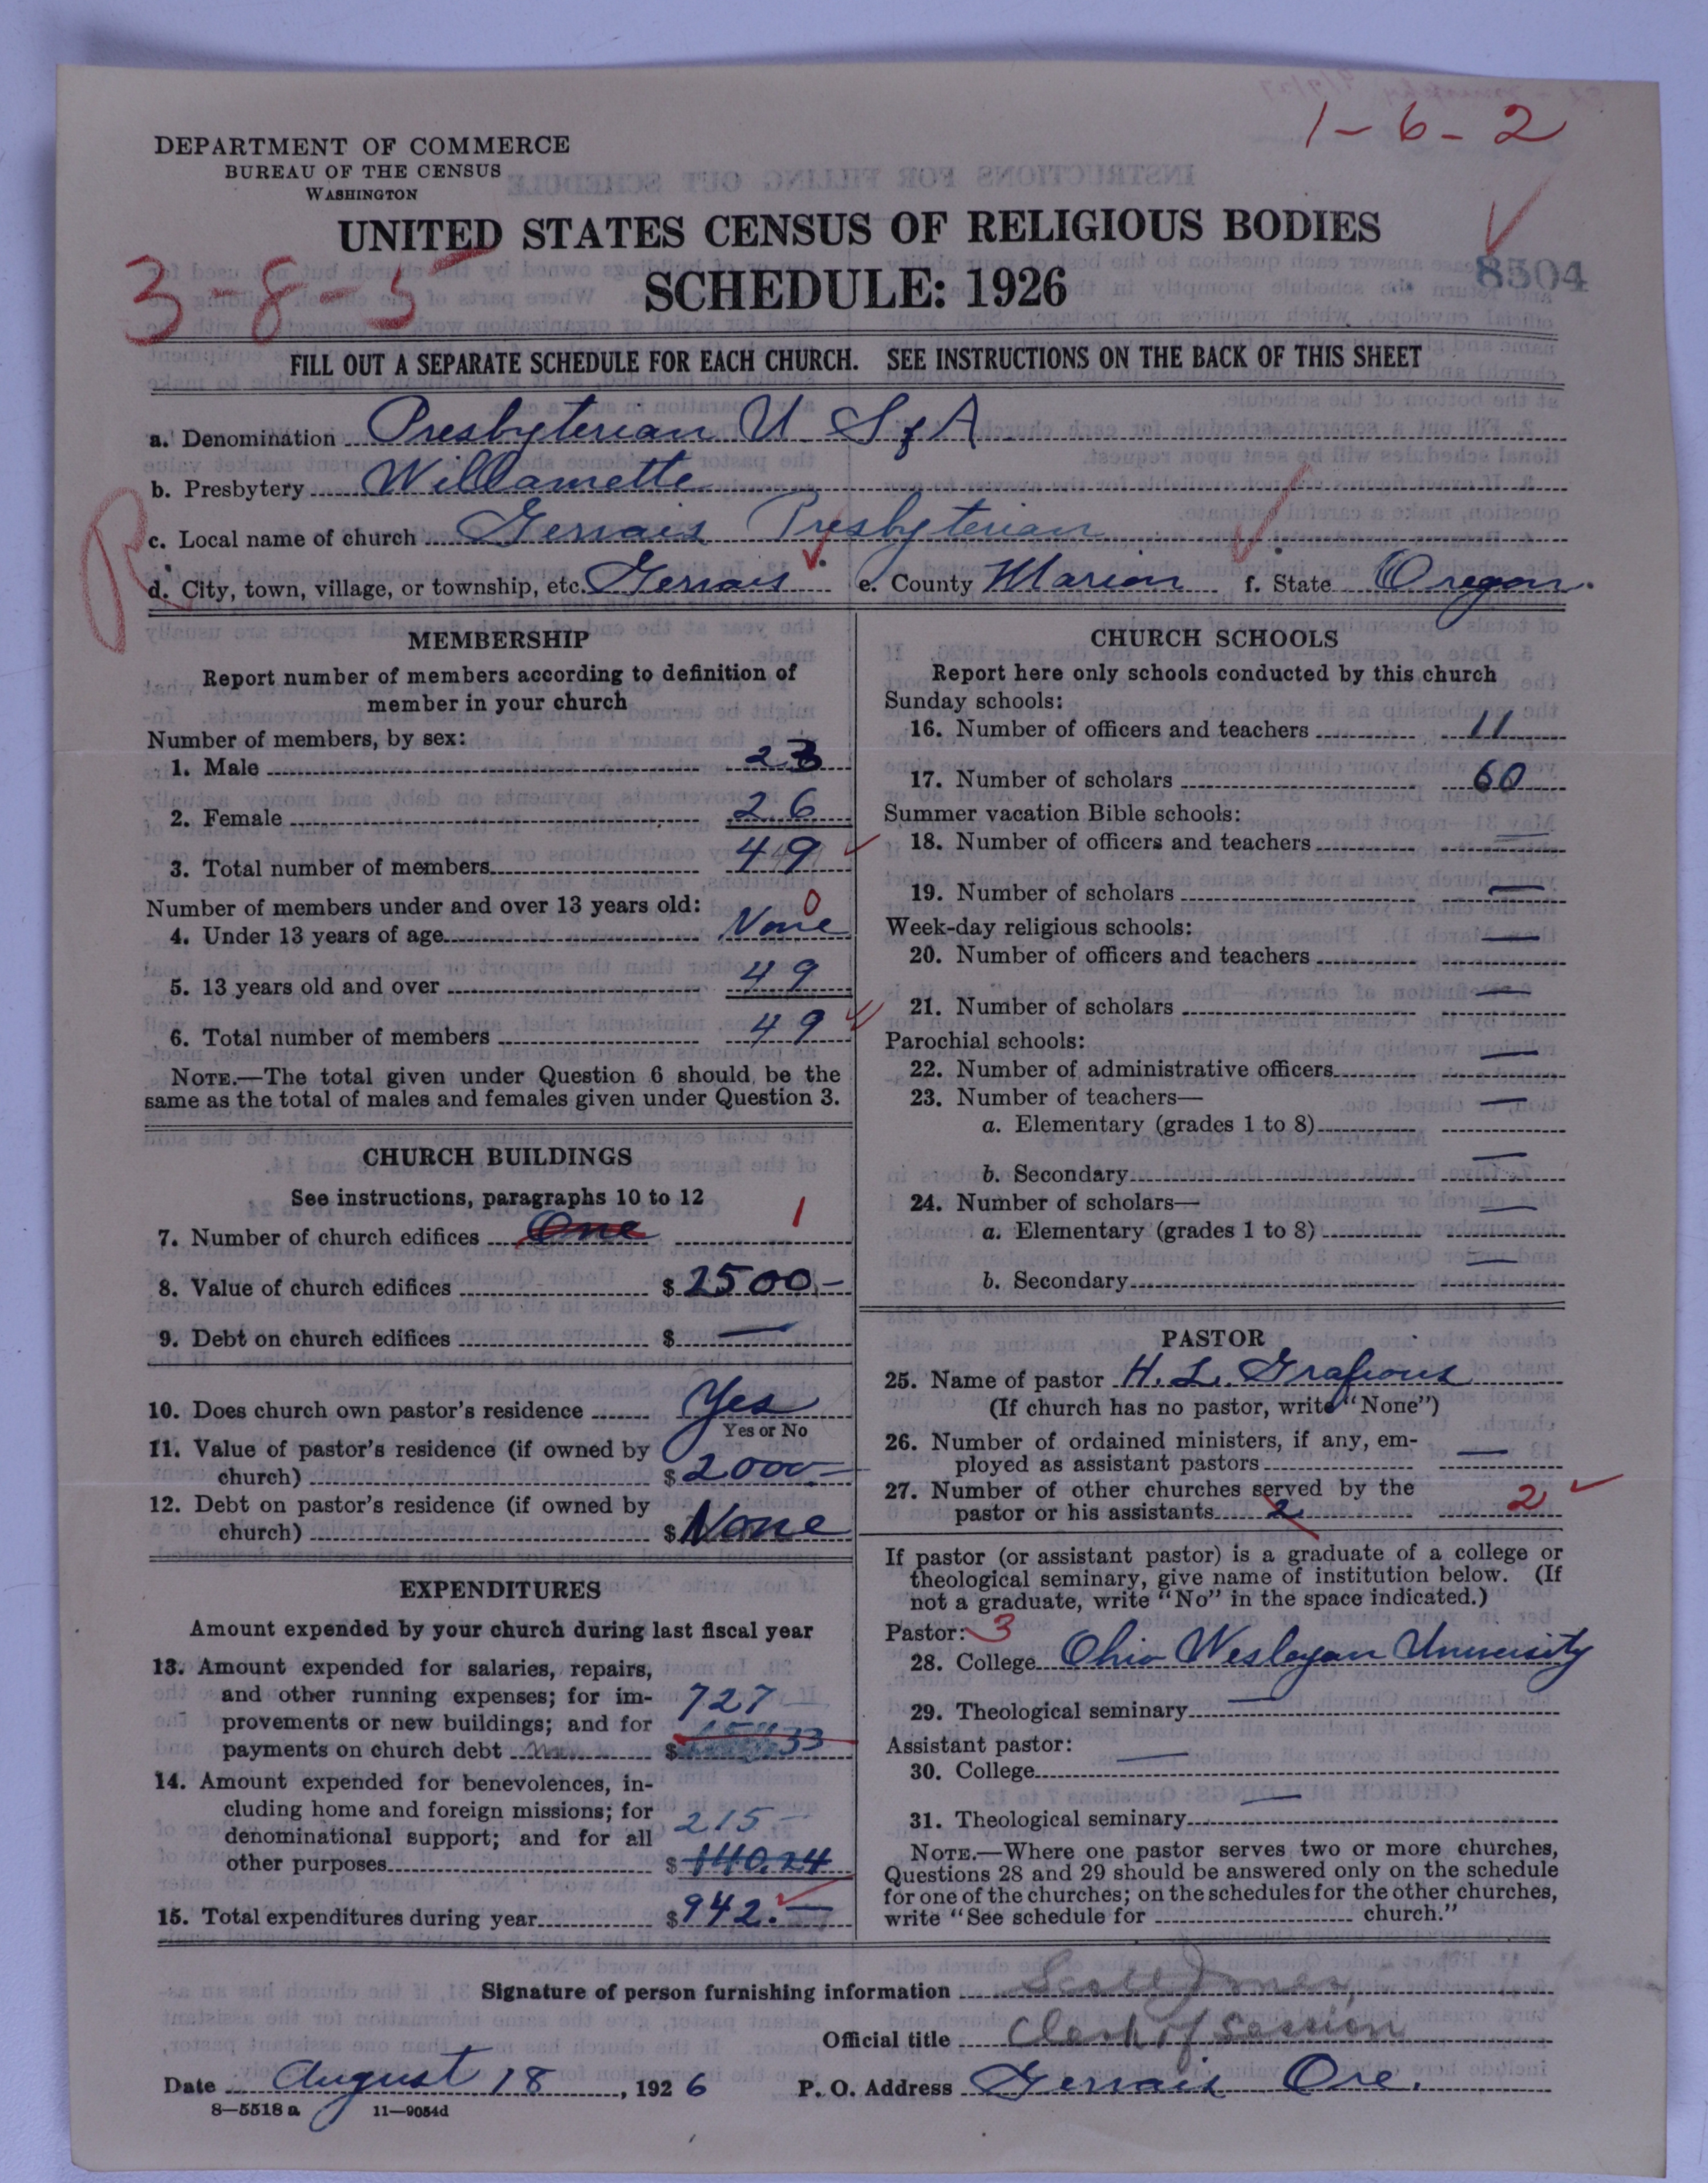 1-6-2
DEPARTMENT OF COMMERCE
BUREAU OF THE CENSUS
WASHINGTON
UNITED STATES CENSUS OF RELIGIOUS BODIES
SCHEDULE: 1926
3-8-5
8504
FILL OUT A SEPARATE SCHEDULE FOR EACH CHURCH. SEE INSTRUCTIONS ON THE BACK OF THIS SHEET
a. Denomination Presbyterian U S of A
b. Presbytery Willamette
R
c. Local name of church Gervais Presbyterian
d. City, town, village, or township, etc. Gervais e. County Marion f. State Oregon.
MEMBERSHIP
Report number of members according to definition of
member in your church
Number of members, by sex:
1. Male 23
2. Female 26
3. Total number of members 49
Number of members under and over 13 years old:
4. Under 13 years of age None 0
5. 13 years old and over 49
6. Total number of members 49
NOTE.—The total given under Question 6 should be the
same as the total of males and females given under Question 3.
CHURCH BUILDINGS
See instructions, paragraphs 10 to 12
7. Number of church edifices One 1
8. Value of church edifices $ 2500.—
9. Debt on church edifices $ —
10. Does church own pastor's residence Yes
Yes or No
11. Value of pastor's residence (if owned by
church) $ 2000.—
12. Debt on pastor's residence (if owned by
church) $ None
EXPENDITURES
Amount expended by your church during last fiscal year
13. Amount expended for salaries, repairs,
and other running expenses; for im-
provements or new buildings; and for 727 —
payments on church debt $ 33
14. Amount expended for benevolences, in-
cluding home and foreign missions; for
denominational support; and for all 215 —
other purposes $ 140.24
15. Total expenditures during year $ 942.—
CHURCH SCHOOLS
Report here only schools conducted by this church
Sunday schools:
16. Number of officers and teachers 11
17. Number of scholars 60
Summer vacation Bible schools:
18. Number of officers and teachers —
19. Number of scholars —
Week-day religious schools:
20. Number of officers and teachers —
21. Number of scholars —
Parochial schools:
22. Number of administrative officers —
23. Number of teachers—
a. Elementary (grades 1 to 8) —
b. Secondary —
24. Number of scholars—
a. Elementary (grades 1 to 8) —
b. Secondary —
PASTOR
25. Name of pastor H. L. Grafious
(If church has no pastor, write "None")
26. Number of ordained ministers, if any, em-
ployed as assistant pastors —
27. Number of other churches served by the
pastor or his assistants 2 2
If pastor (or assistant pastor) is a graduate of a college or
theological seminary, give name of institution below. (If
not a graduate, write "No" in the space indicated.)
Pastor: 3
28. College Ohio Wesleyan University
29. Theological seminary —
Assistant pastor:
30. College —
31. Theological seminary —
NOTE.—Where one pastor serves two or more churches,
Questions 28 and 29 should be answered only on the schedule
for one of the churches; on the schedules for the other churches,
write "See schedule for church."
Signature of person furnishing information Scott Jones,
Official title Clerk of Session
Date August 18, 1926 P. O. Address Gervais Ore.
8—5518 a 11—9054d